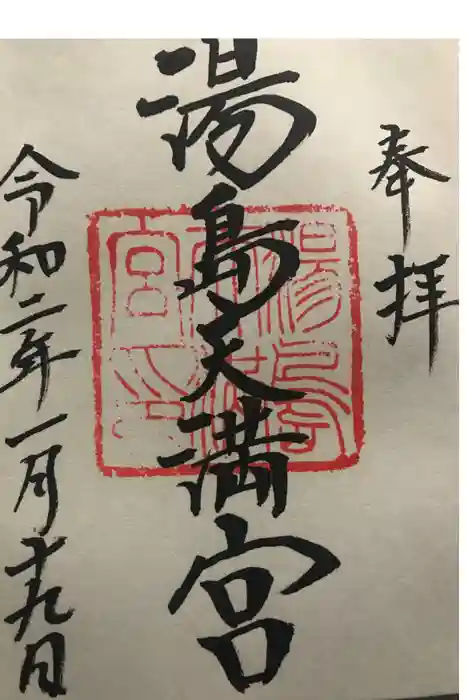 奉拝
湯島天満宮
令和二年一月十九日